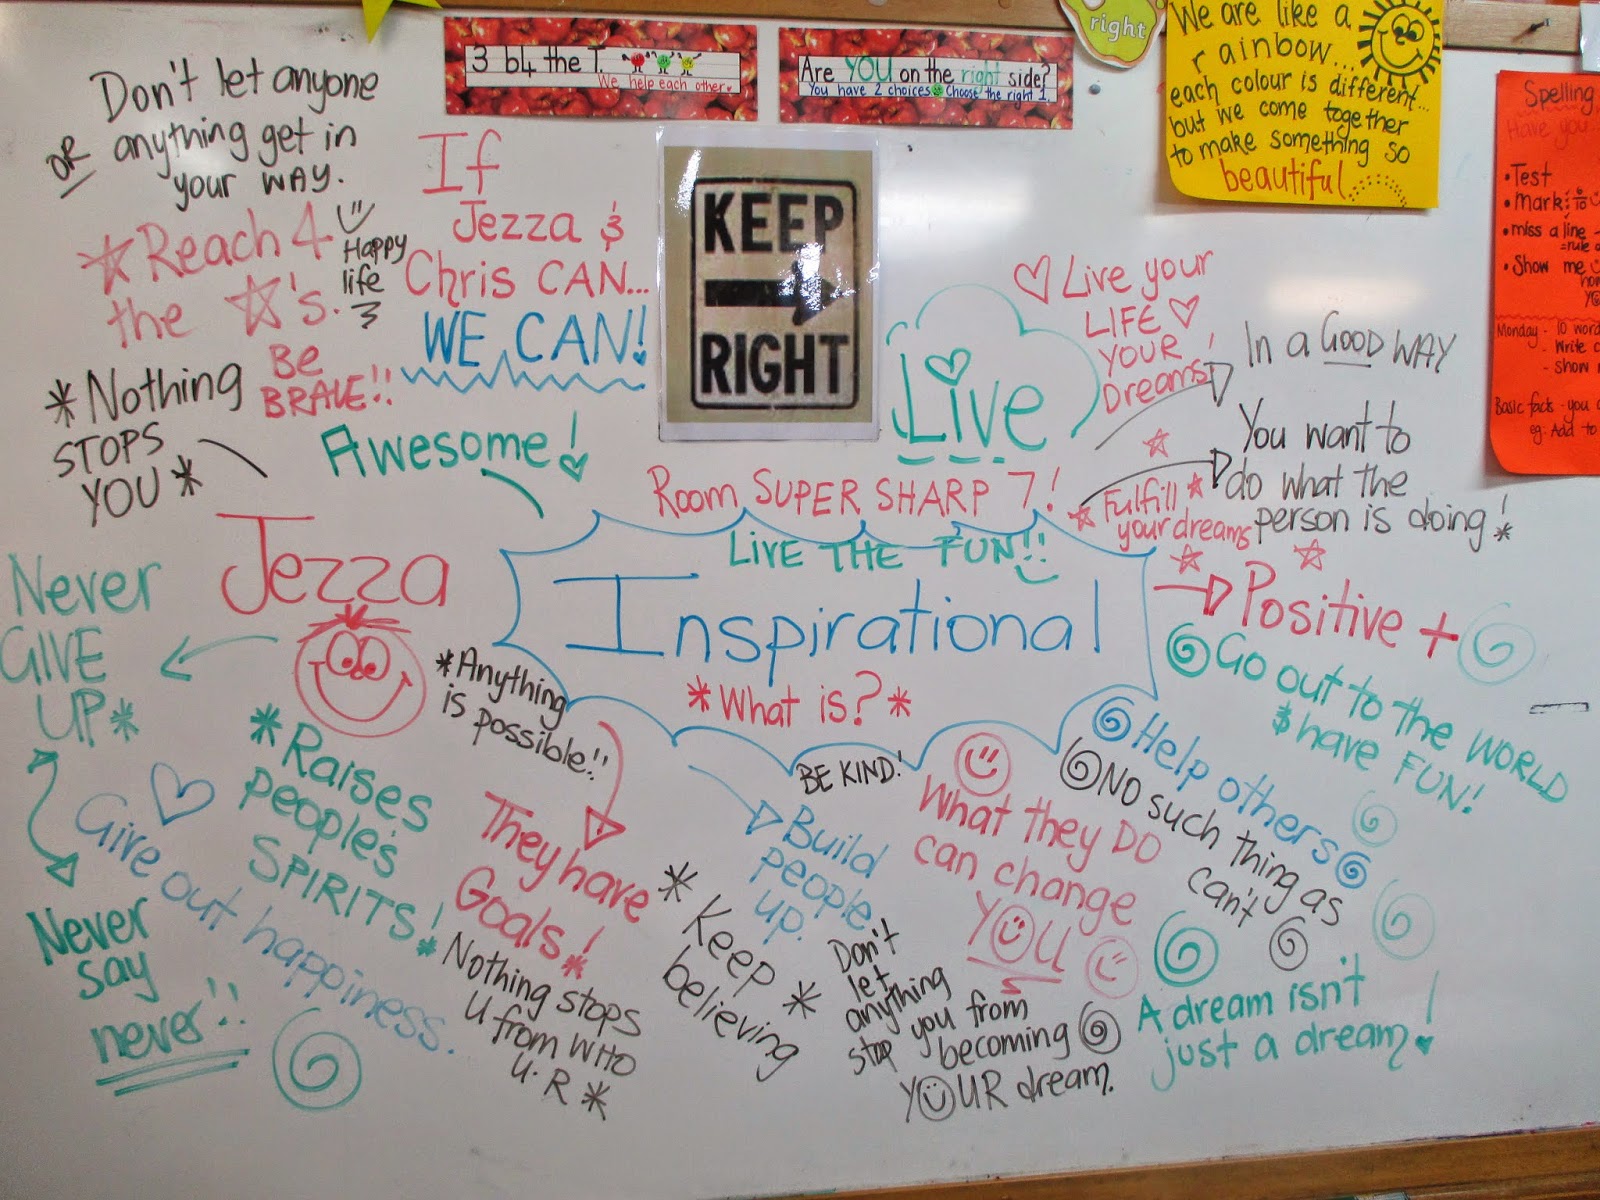 Don't let anyone
OR anything get in
your WAY.
Happy
life
☆ Reach 4
the ☆'s.
3 b4 the T.
We help each other.
Are YOU on the right side?
You have 2 choices Choose the right 1.
right
We are like a
rainbow...
each colour is
different...
but we come together
to make something so
beautiful....
Spelling
Have you
• Test
• Mark
• miss a line
= rule
• Show me
Monday - 10
- Write
- Show
Basic facts - you
eg: Add to
If
Jezza &
Chris CAN...
WE CAN!
KEEP
RIGHT
Be
BRAVE!!
* Nothing
STOPS
YOU *
Awesome!
Live
♡ Live your
LIFE ♡
YOUR
Dreams!
In a GOOD WAY
You want to
do what the
person is doing! *
Room SUPER SHARP 7!
☆ Fulfill ☆
your dreams
LIVE THE FUN!!
Inspirational
*What is?*
Positive +
Jezza
Never
GIVE
UP*
*Anything
is possible!!
Go out to the WORLD
& have FUN!
Help others
NO such thing as
can't
BE KIND!
What they DO
can change
YOU
Build
people
up.
They have
Goals! *
*Raises
people's
SPIRITS! *
Give out happiness.
Never
say
never!!
Nothing stops
U from WHO
U.R *
* Keep *
believing
Don't
let
anything
stop you from
becoming
YOUR dream.
A dream isn't
just a dream!